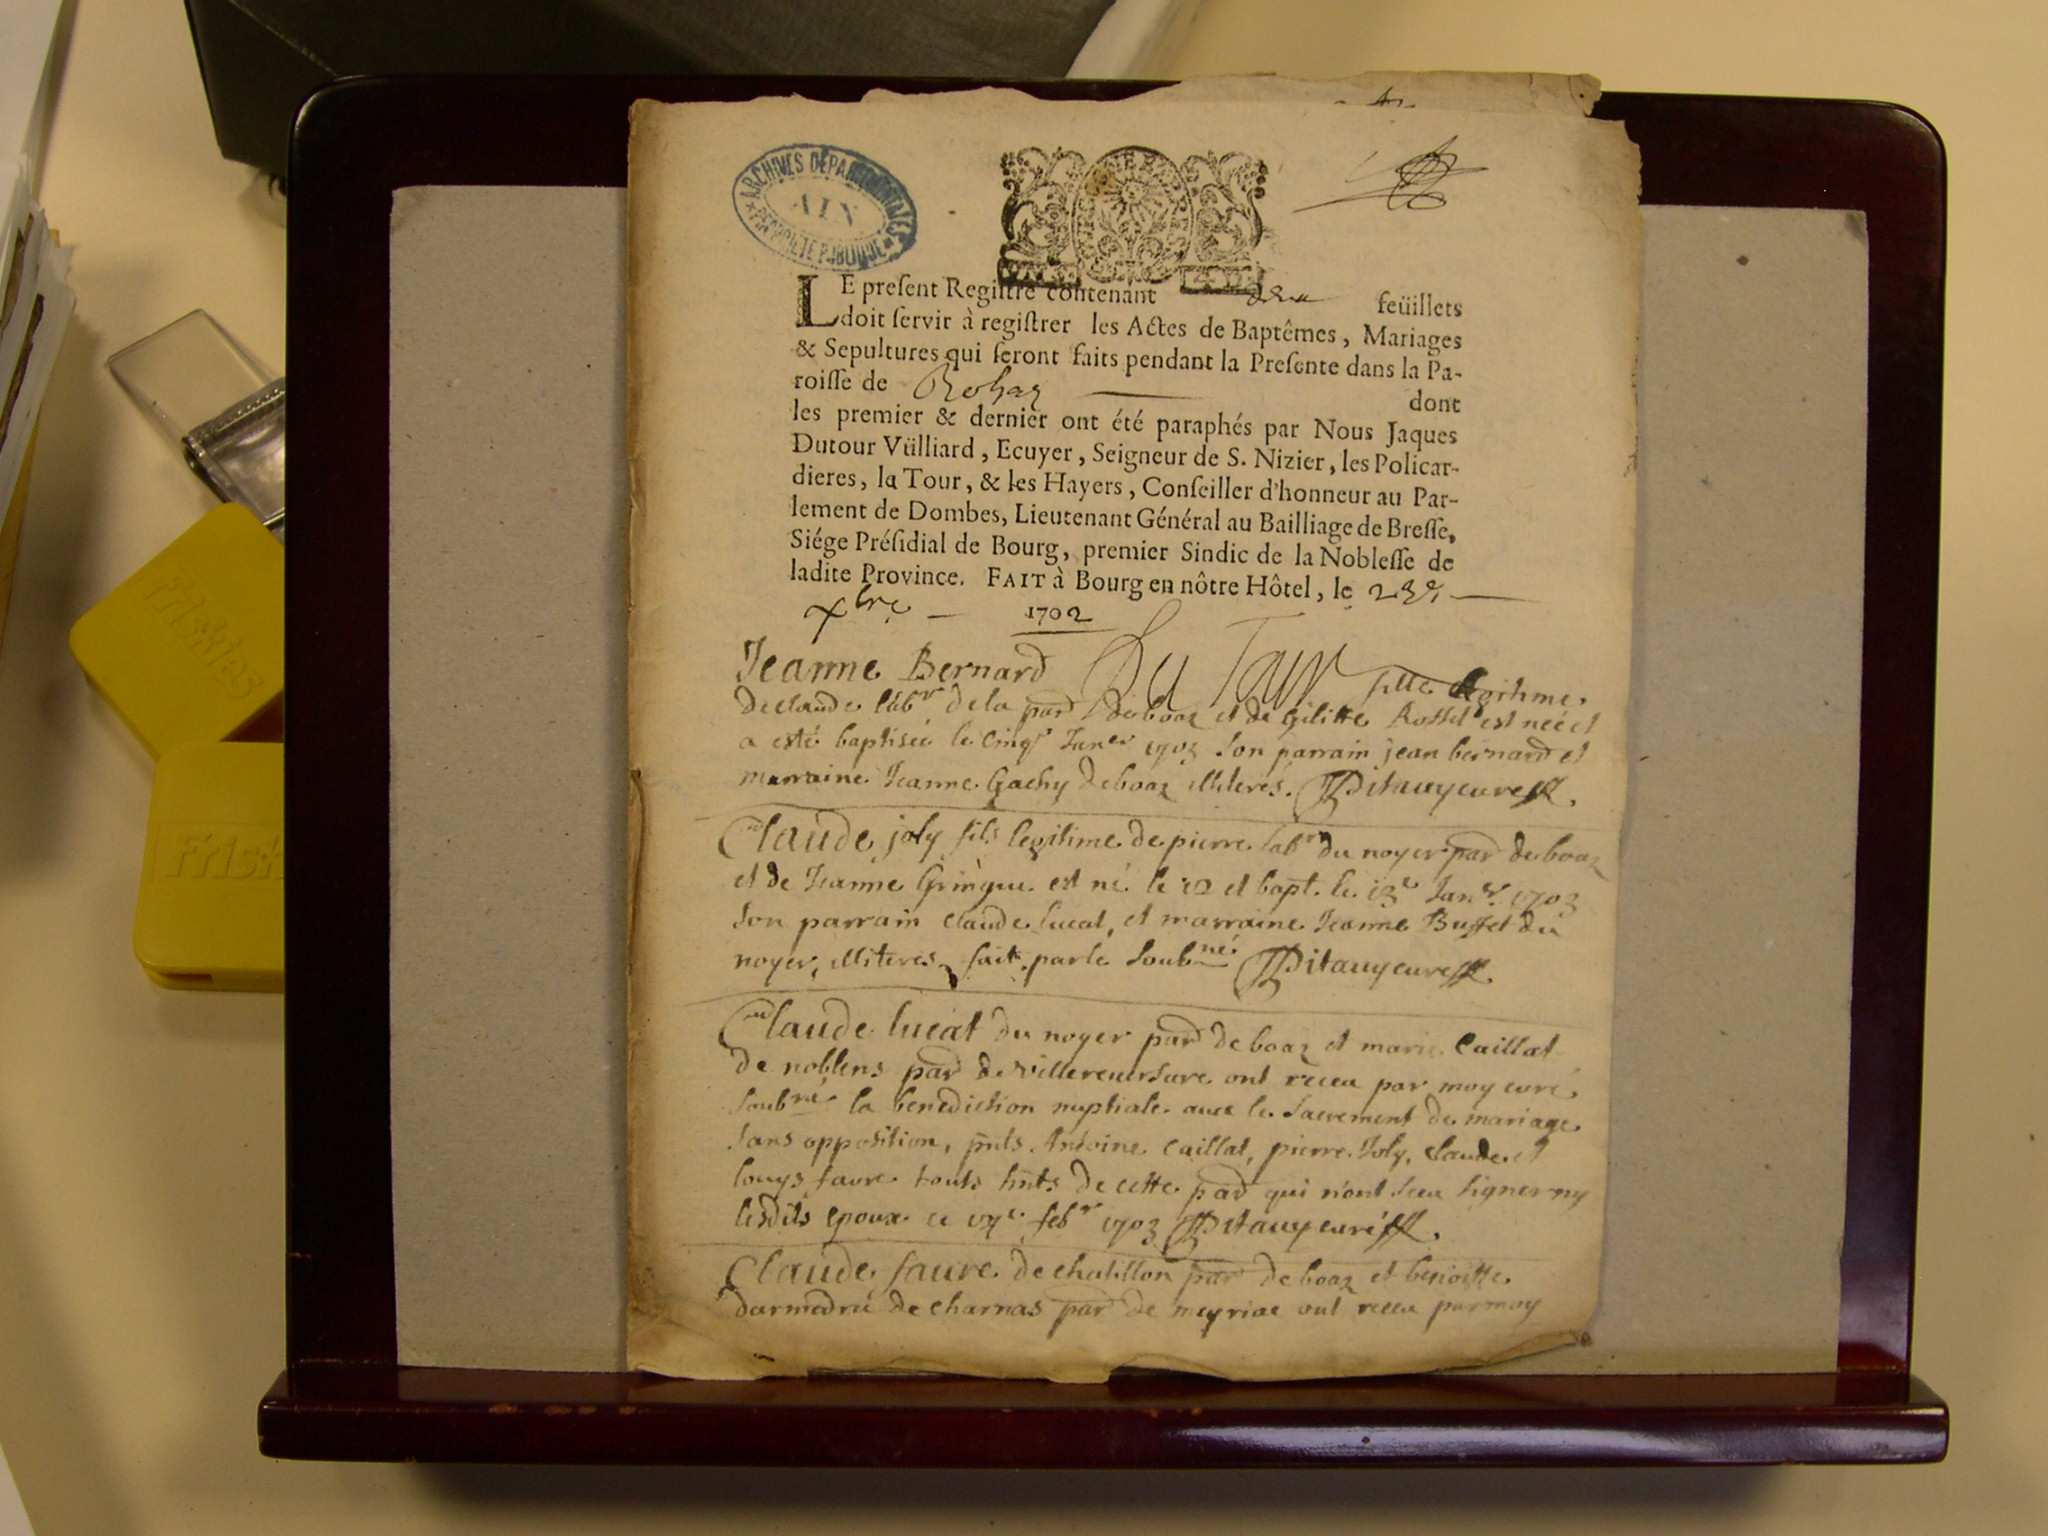 ARCHIVES DÉPARTEMENTALES
AIN
PROPRIÉTÉ PUBLIQUE
LE preſent Regiſtre contenant deux feüillets
doit ſervir à regiſtrer les Actes de Baptêmes, Mariages
& Sepultures qui ſeront faits pendant la Preſente dans la Pa-
roiſſe de Bohaz dont
les premier & dernier ont été paraphés par Nous Jaques
Dutour Vülliard, Ecuyer, Seigneur de S. Nizier, les Policar-
dieres, la Tour, & les Hayers, Conſeiller d'honneur au Par-
lement de Dombes, Lieutenant Général au Bailliage de Breſſe,
Siége Préſidial de Bourg, premier Sindic de la Nobleſſe de
ladite Province. FAIT à Bourg en nôtre Hôtel, le 23e
xbre 1702
Du Tour
Jeanne Bernard fille legitime
de claude labr de la parr de boaz et de Gilitte Rosset est neé et
a esté baptiseé le cinqe Janer 1703 son parrain jean bernard et
marraine Jeanne Gachy de boaz illiteres. Pitauy curé
Claude joly fils legitime de pierre labr du noyer parr de boaz
et de Jeanne Gringue est né le 12 et bapt. le 13e Janer 1703
son parrain claude lucat, et marraine Jeanne Buffet du
noyer, illiteres, fait par le soubné Pitauy curé
Claude lucat du noyer parr de boaz et marie Caillat
de noblens parr de villereversure ont receu par moy curé
soubné la benediction nuptiale avec le sacrement de mariage
sans opposition, pnts Antoine Caillat, pierre Joly, claude et
louys favre touts hnts de cette parr qui n'ont sceu signer ny
lesdits epoux ce febr 1703 Pitauy curé
Claude favre de chatillon parr de boaz et benoitte
darmedru de charnas parr de meyriac ont receu par moy
Friskies
Frisk